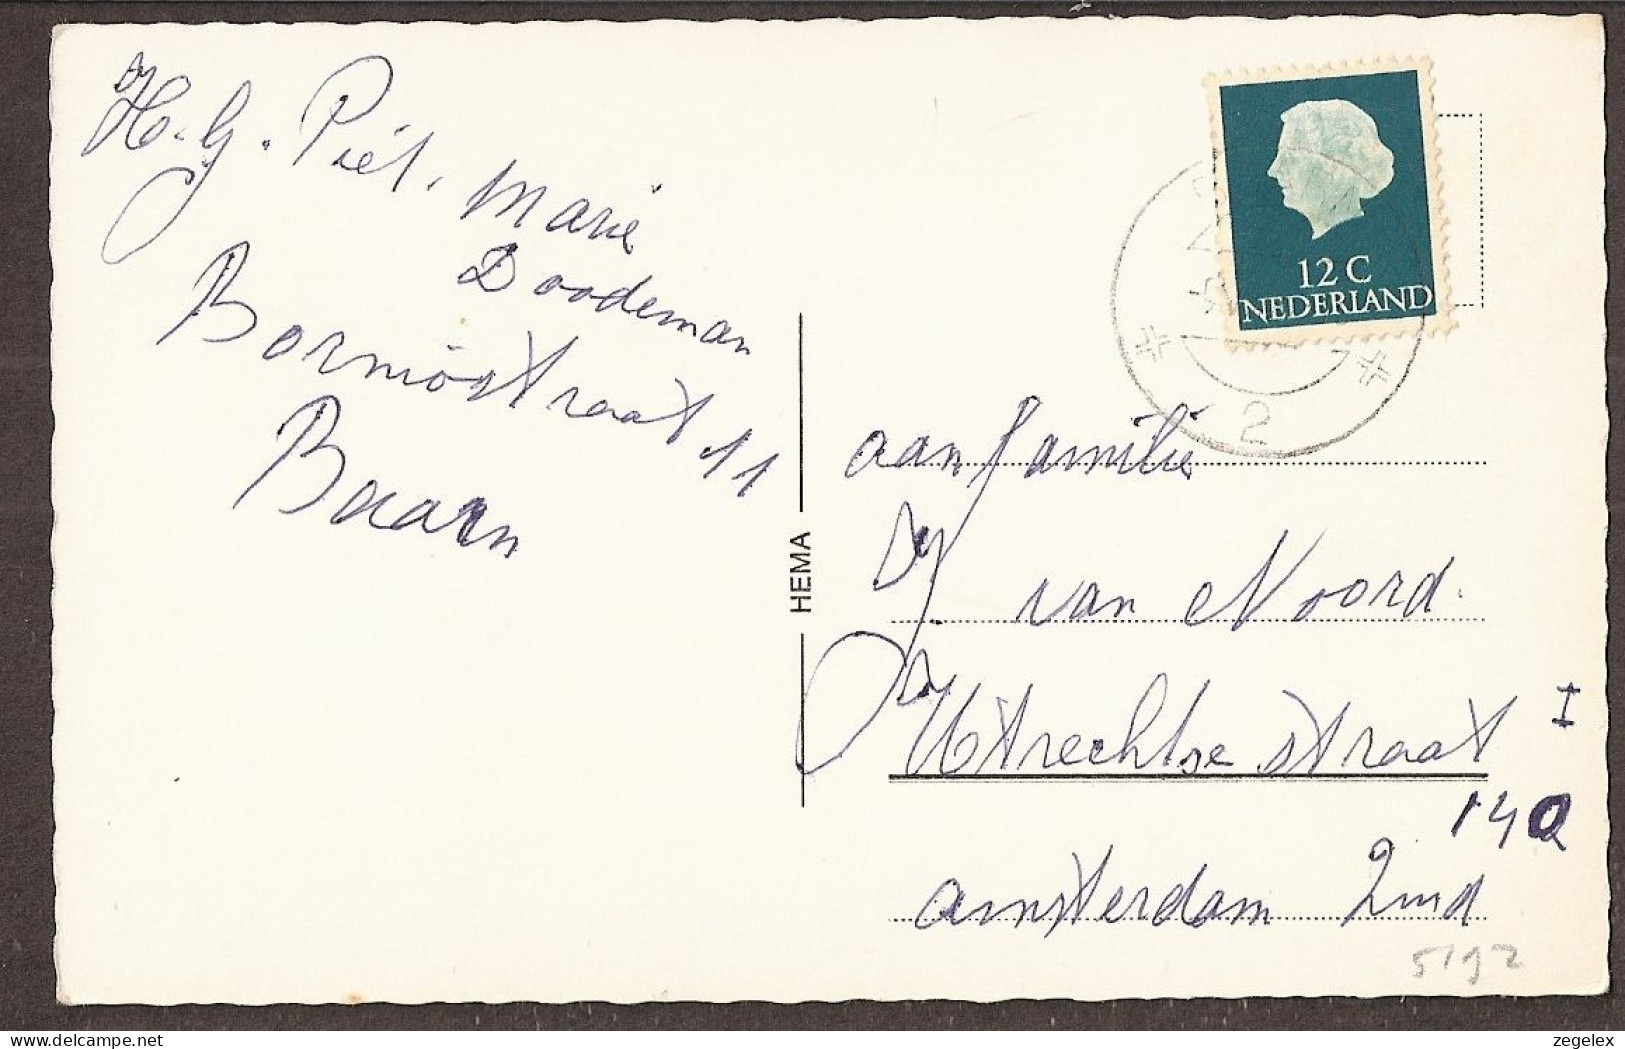 H.G. Piet, Marie
Doodeman
Borneostraat 11
Baarn
HEMA
12 C
NEDERLAND
2
aan familie
van Noord.
Utrechtse straat I
140
amsterdam Zuid
5192
zegelex